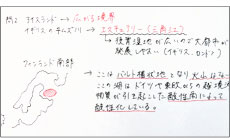 問2 アイスランド → 広がる境界
イギリスのテムズ川 → エスチュアリー(三角江)
→ 後背湿地が広いので大都市が
発展しやすい(イギリス:ロンドン)
フィンランド南部
→ ここはバルト楯状地となり火山はない
この湖はドイツや東欧からの越境汚染
物質が引き起こした酸性雨によって
酸性化している。